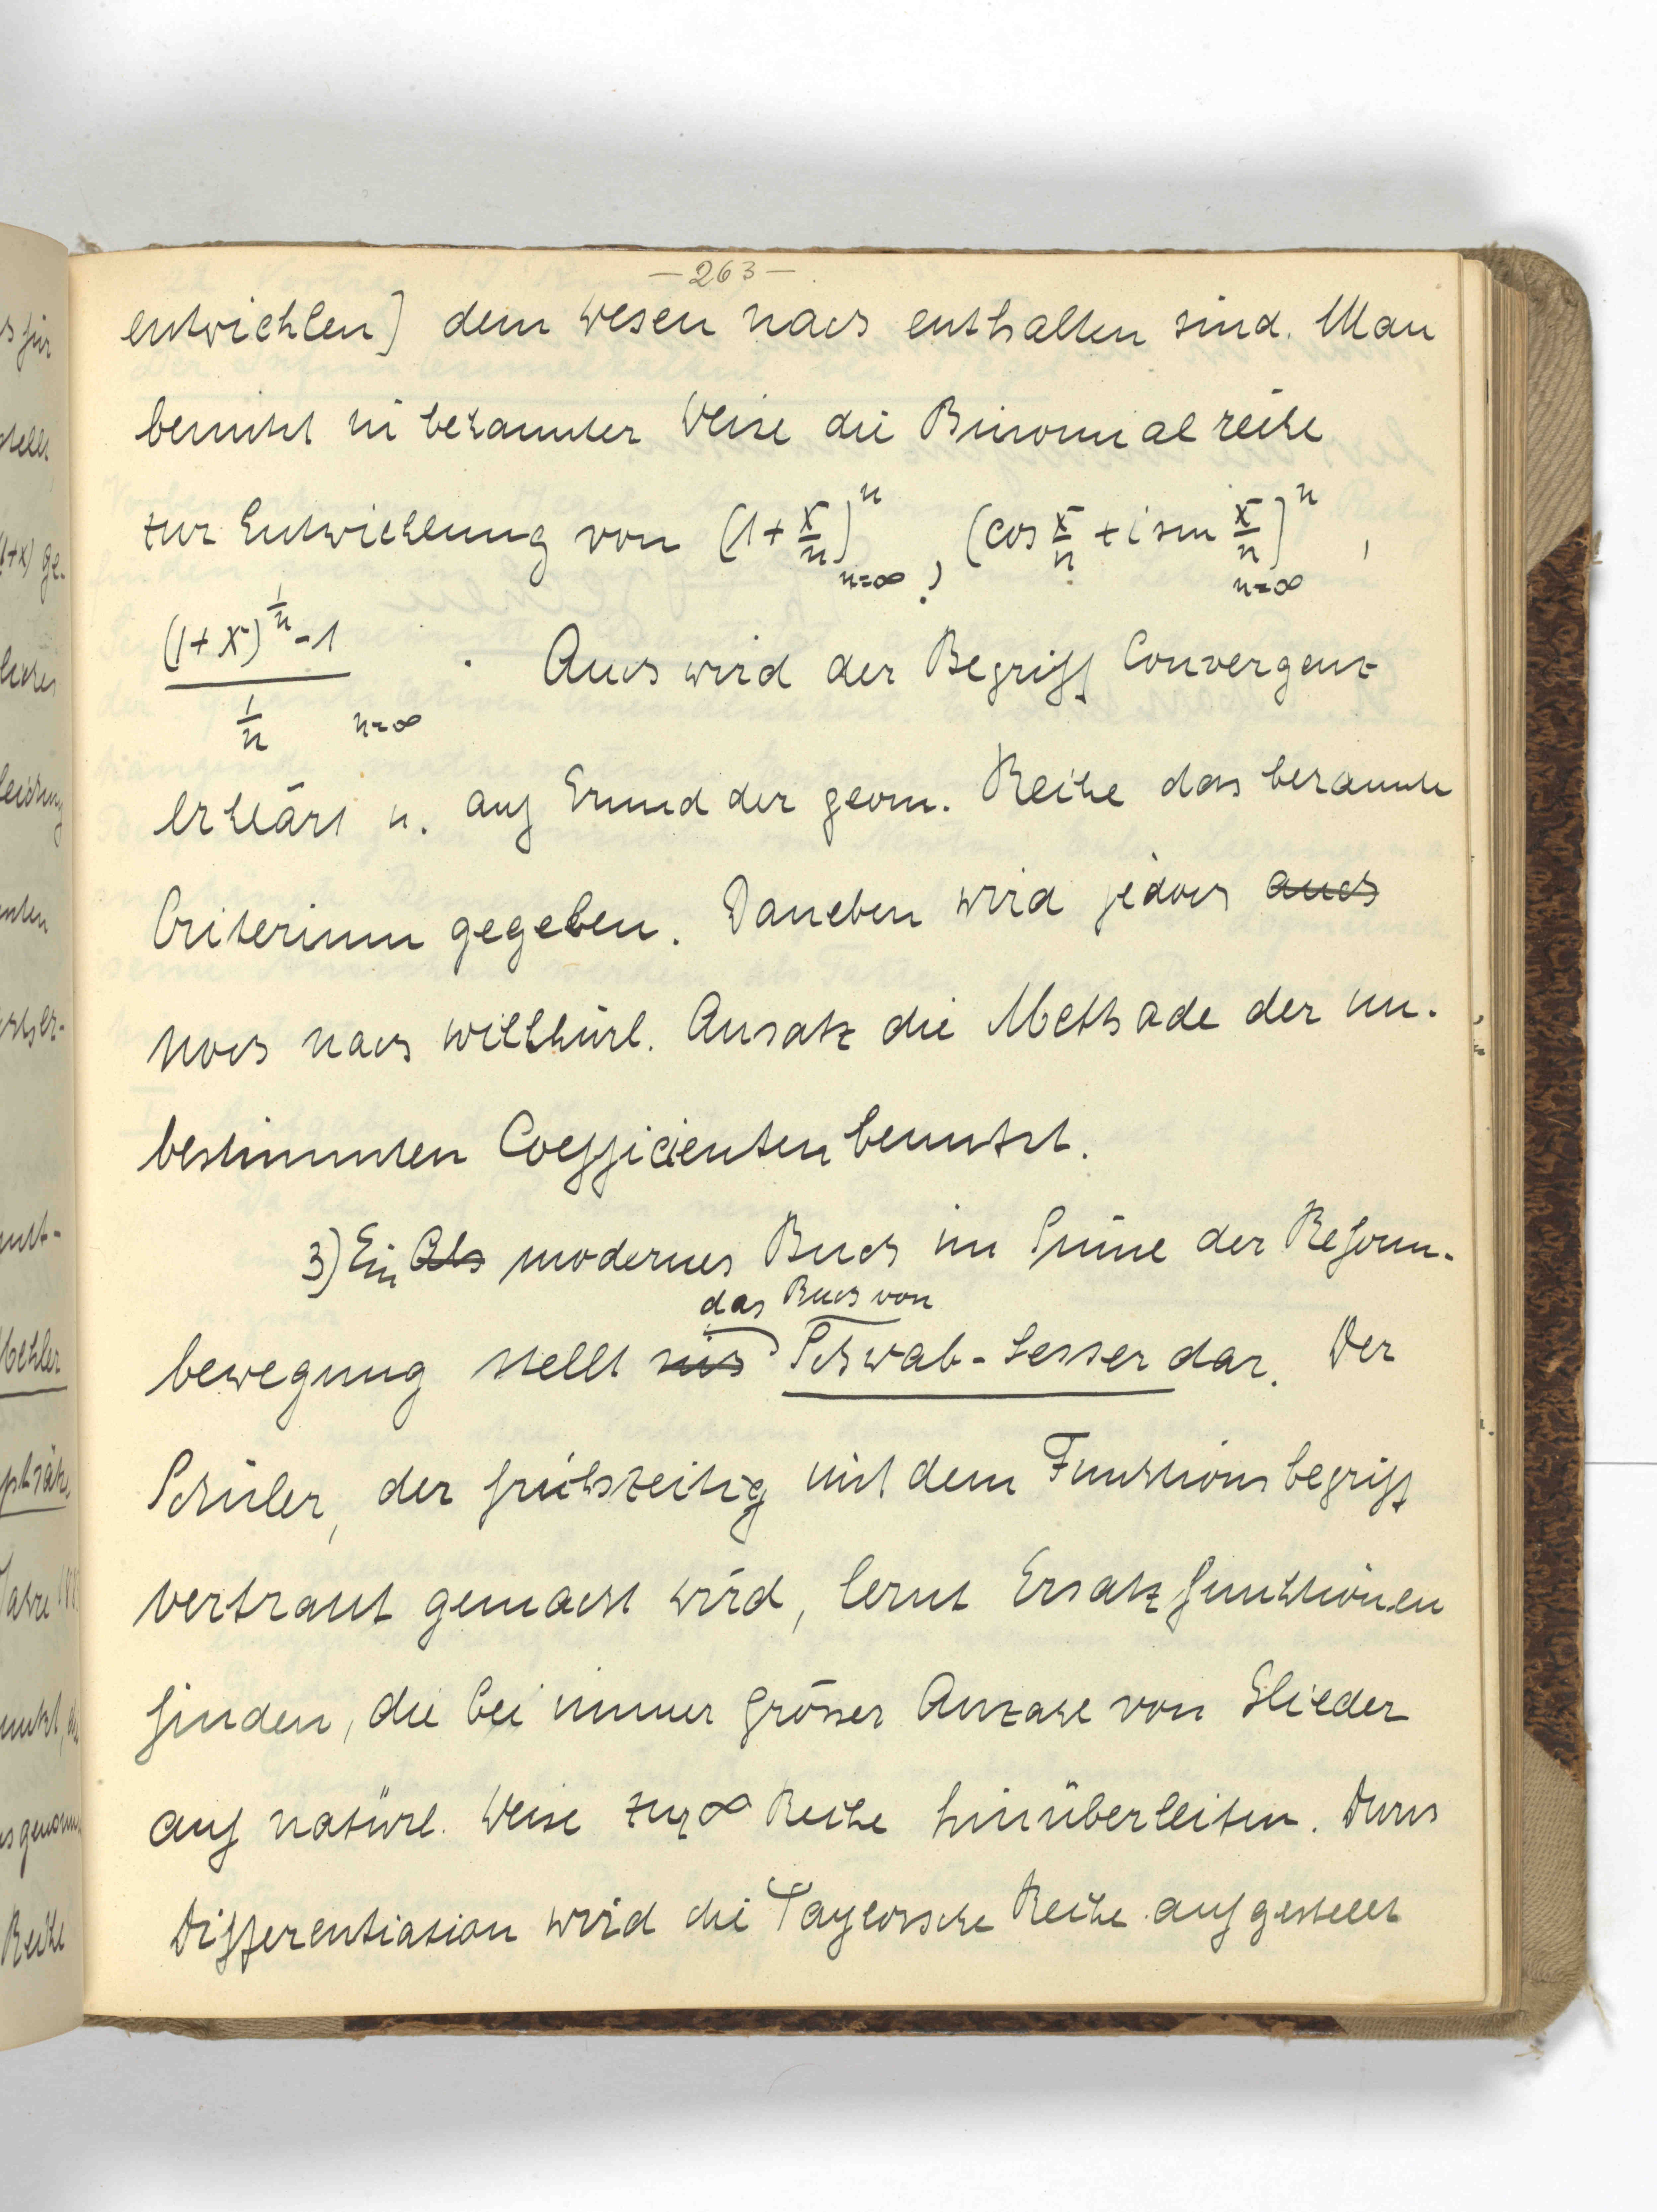 — 263 —
entwicklen] dem Wesen nach enthalten sind. Man
benutzt in bekannter Weise die Binomialreihe
zur Entwicklung von (1+x/n)^n n=∞, (cos x/n + i sin x/n)^n n=∞,
((1+x)^(1/n) - 1)/(1/n) n=∞. Auch wird der Begriff Convergenz
erklärt u. auf Grund der geom. Reihe das bekannte
Criterium gegeben. Daneben wird jedoch auch
noch nach willkürl. Ansatz die Methode der un-
bestimmten Coefficienten benutzt.
3) Ein Als modernes Buch im Sinne der Reform-
das Buch von
bewegung stellt sich Schwab-Lesser dar. Der
Schüler, der frühzeitig mit dem Funktionsbegriff
vertraut gemacht wird, lernt Ersatzfunktionen
finden, die bei immer grösser Anzahl von Glieder
auf natürl. Weise zur ∞ Reihe hinüberleiten. Durch
Differentiation wird die Taylorsche Reihe aufgestellt